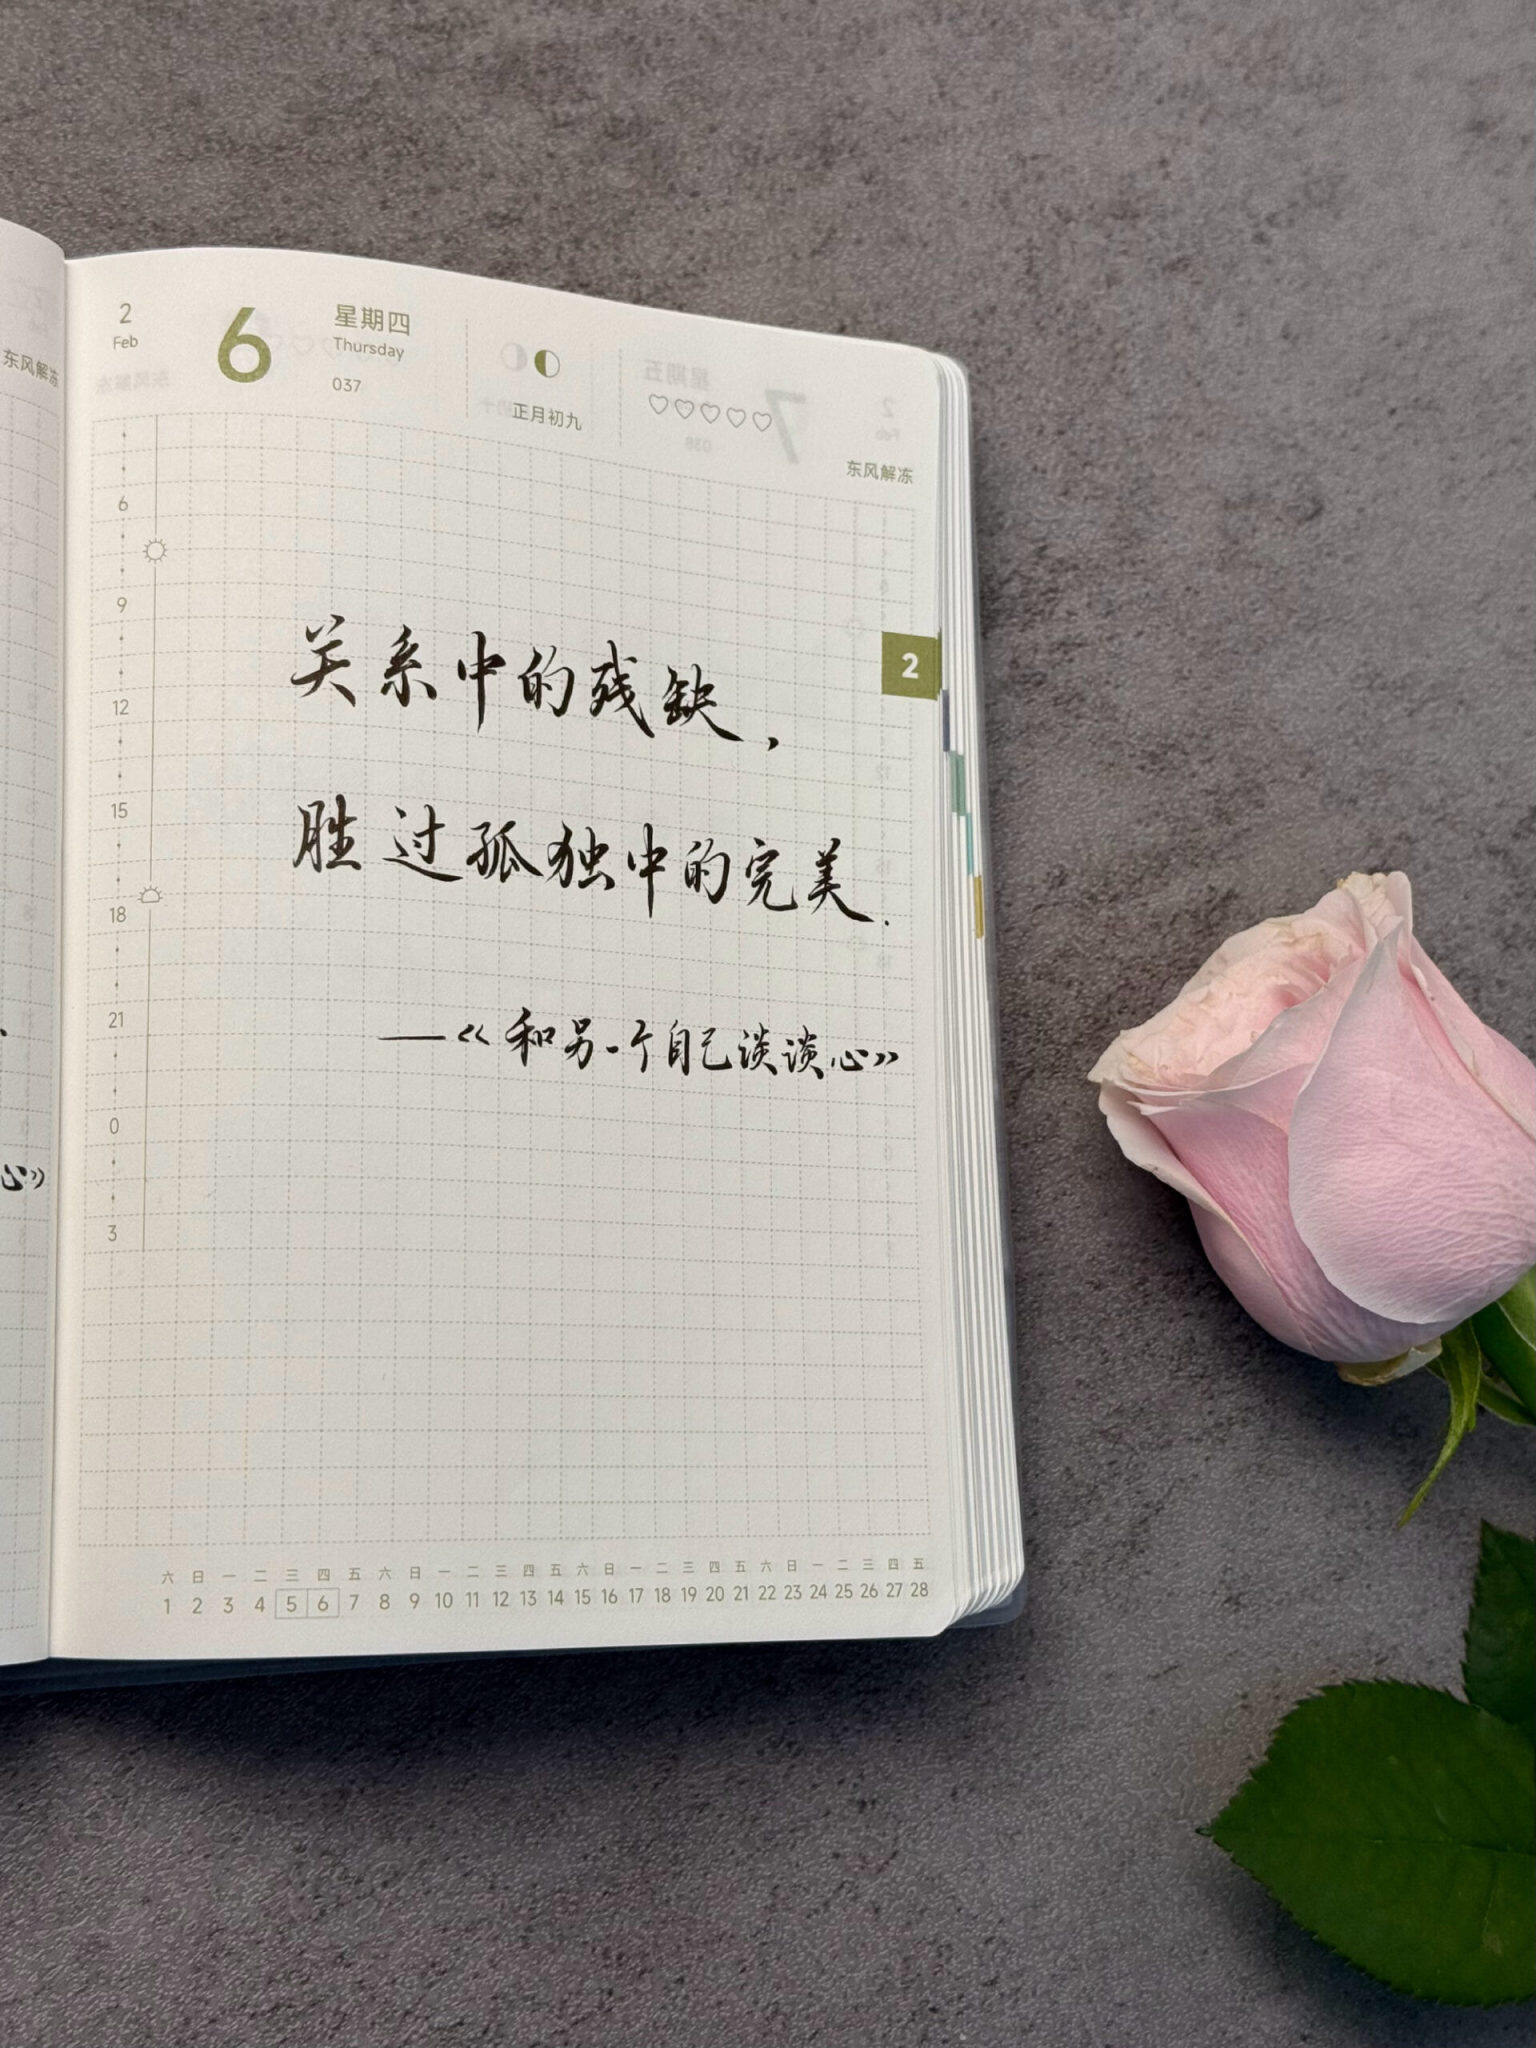 东风解冻
心》
2
Feb
6
星期四
Thursday
037
正月初九
东风解冻
6
9
12
15
18
21
0
3
2
关系中的残缺，
胜过孤独中的完美.
——《和另一个自己谈谈心》
六 日 一 二 三 四 五 六 日 一 二 三 四 五 六 日 一 二 三 四 五 六 日 一 二 三 四 五
1 2 3 4 5 6 7 8 9 10 11 12 13 14 15 16 17 18 19 20 21 22 23 24 25 26 27 28